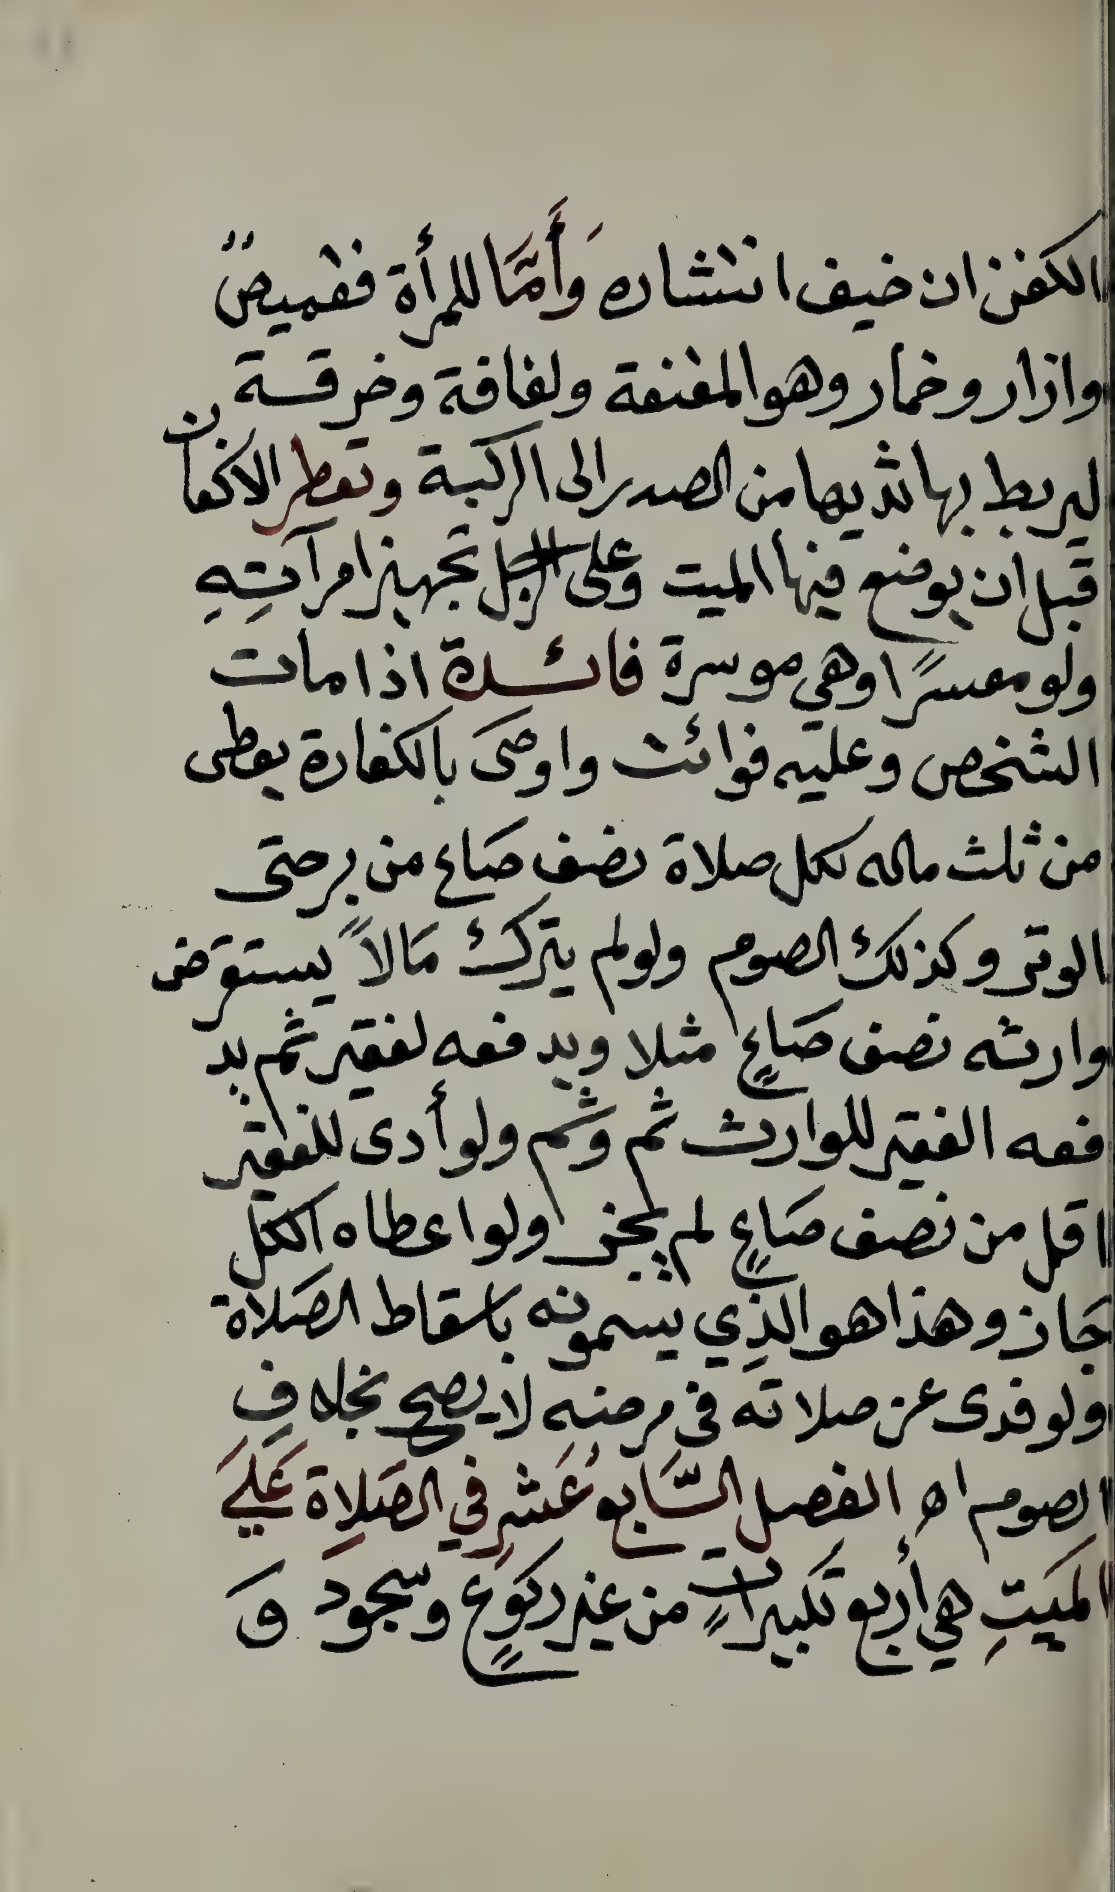 الكفن ان خيف انتشاره وَأَمَّا للمرأة فقميصٌ
وازار وخمار وهو المقنعة ولفافة وخرقة
ليربط بها ثديها من الصدر الى الركبة وتعطر الاكفان
قبل ان يوضع فيها الميت وعلى الرجل تجهيز امرآتِهِ
ولو معسرًا وهي موسرة فائدة اذا مات
الشخص وعليه فوائت واوصَى بالكفارة يعطى
من ثلث ماله لكل صلاة نصف صَاع من بر حتى
الوتر وكذلك الصوم ولو لم يترك مَالاً يستقرَض
وارثه نصف صَاعٍ مثلا ويد فعه لفقير ثم يد
فعه الفقير للوارث ثم وثم ولو أدى للفقير
اقل من نصف صَاعٍ لم يجز ولو اعطاه الكل
جَاز وهذا هو الذِي يسمونه باسقاط الصَلاة
ولو فدى عن صلاته في مرضه لا يصح بخلافِ
الصوم اه الفصل السَّابعُ عَشر فِي الصَلاِة عَلَے
المَيتِ هي أربع تكبيراتٍ من غير ركوعٍ وسجود وَ